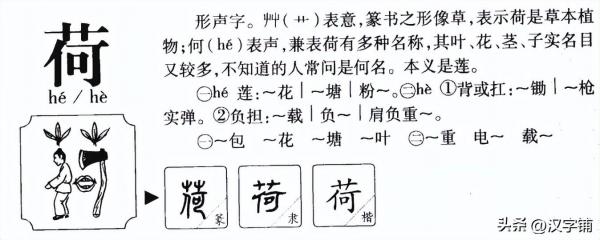 荷
hé / hè
形声字。艸(艹)表意,篆书之形像草,表示荷是草本植
物;何(hé)表声,兼表荷有多种名称,其叶、花、茎、子实名目
又较多,不知道的人常问是何名。本义是莲。
㊀hé 莲:～花｜～塘｜粉～。㊁hè ①背或扛:～锄｜～枪
实弹。②负担:～载｜负～｜肩负重～。
㊀～包 ～花 ～塘 ～叶 ㊁～重 电～ 载～
荷 篆
荷 隶
荷 楷
头条 @汉字铺